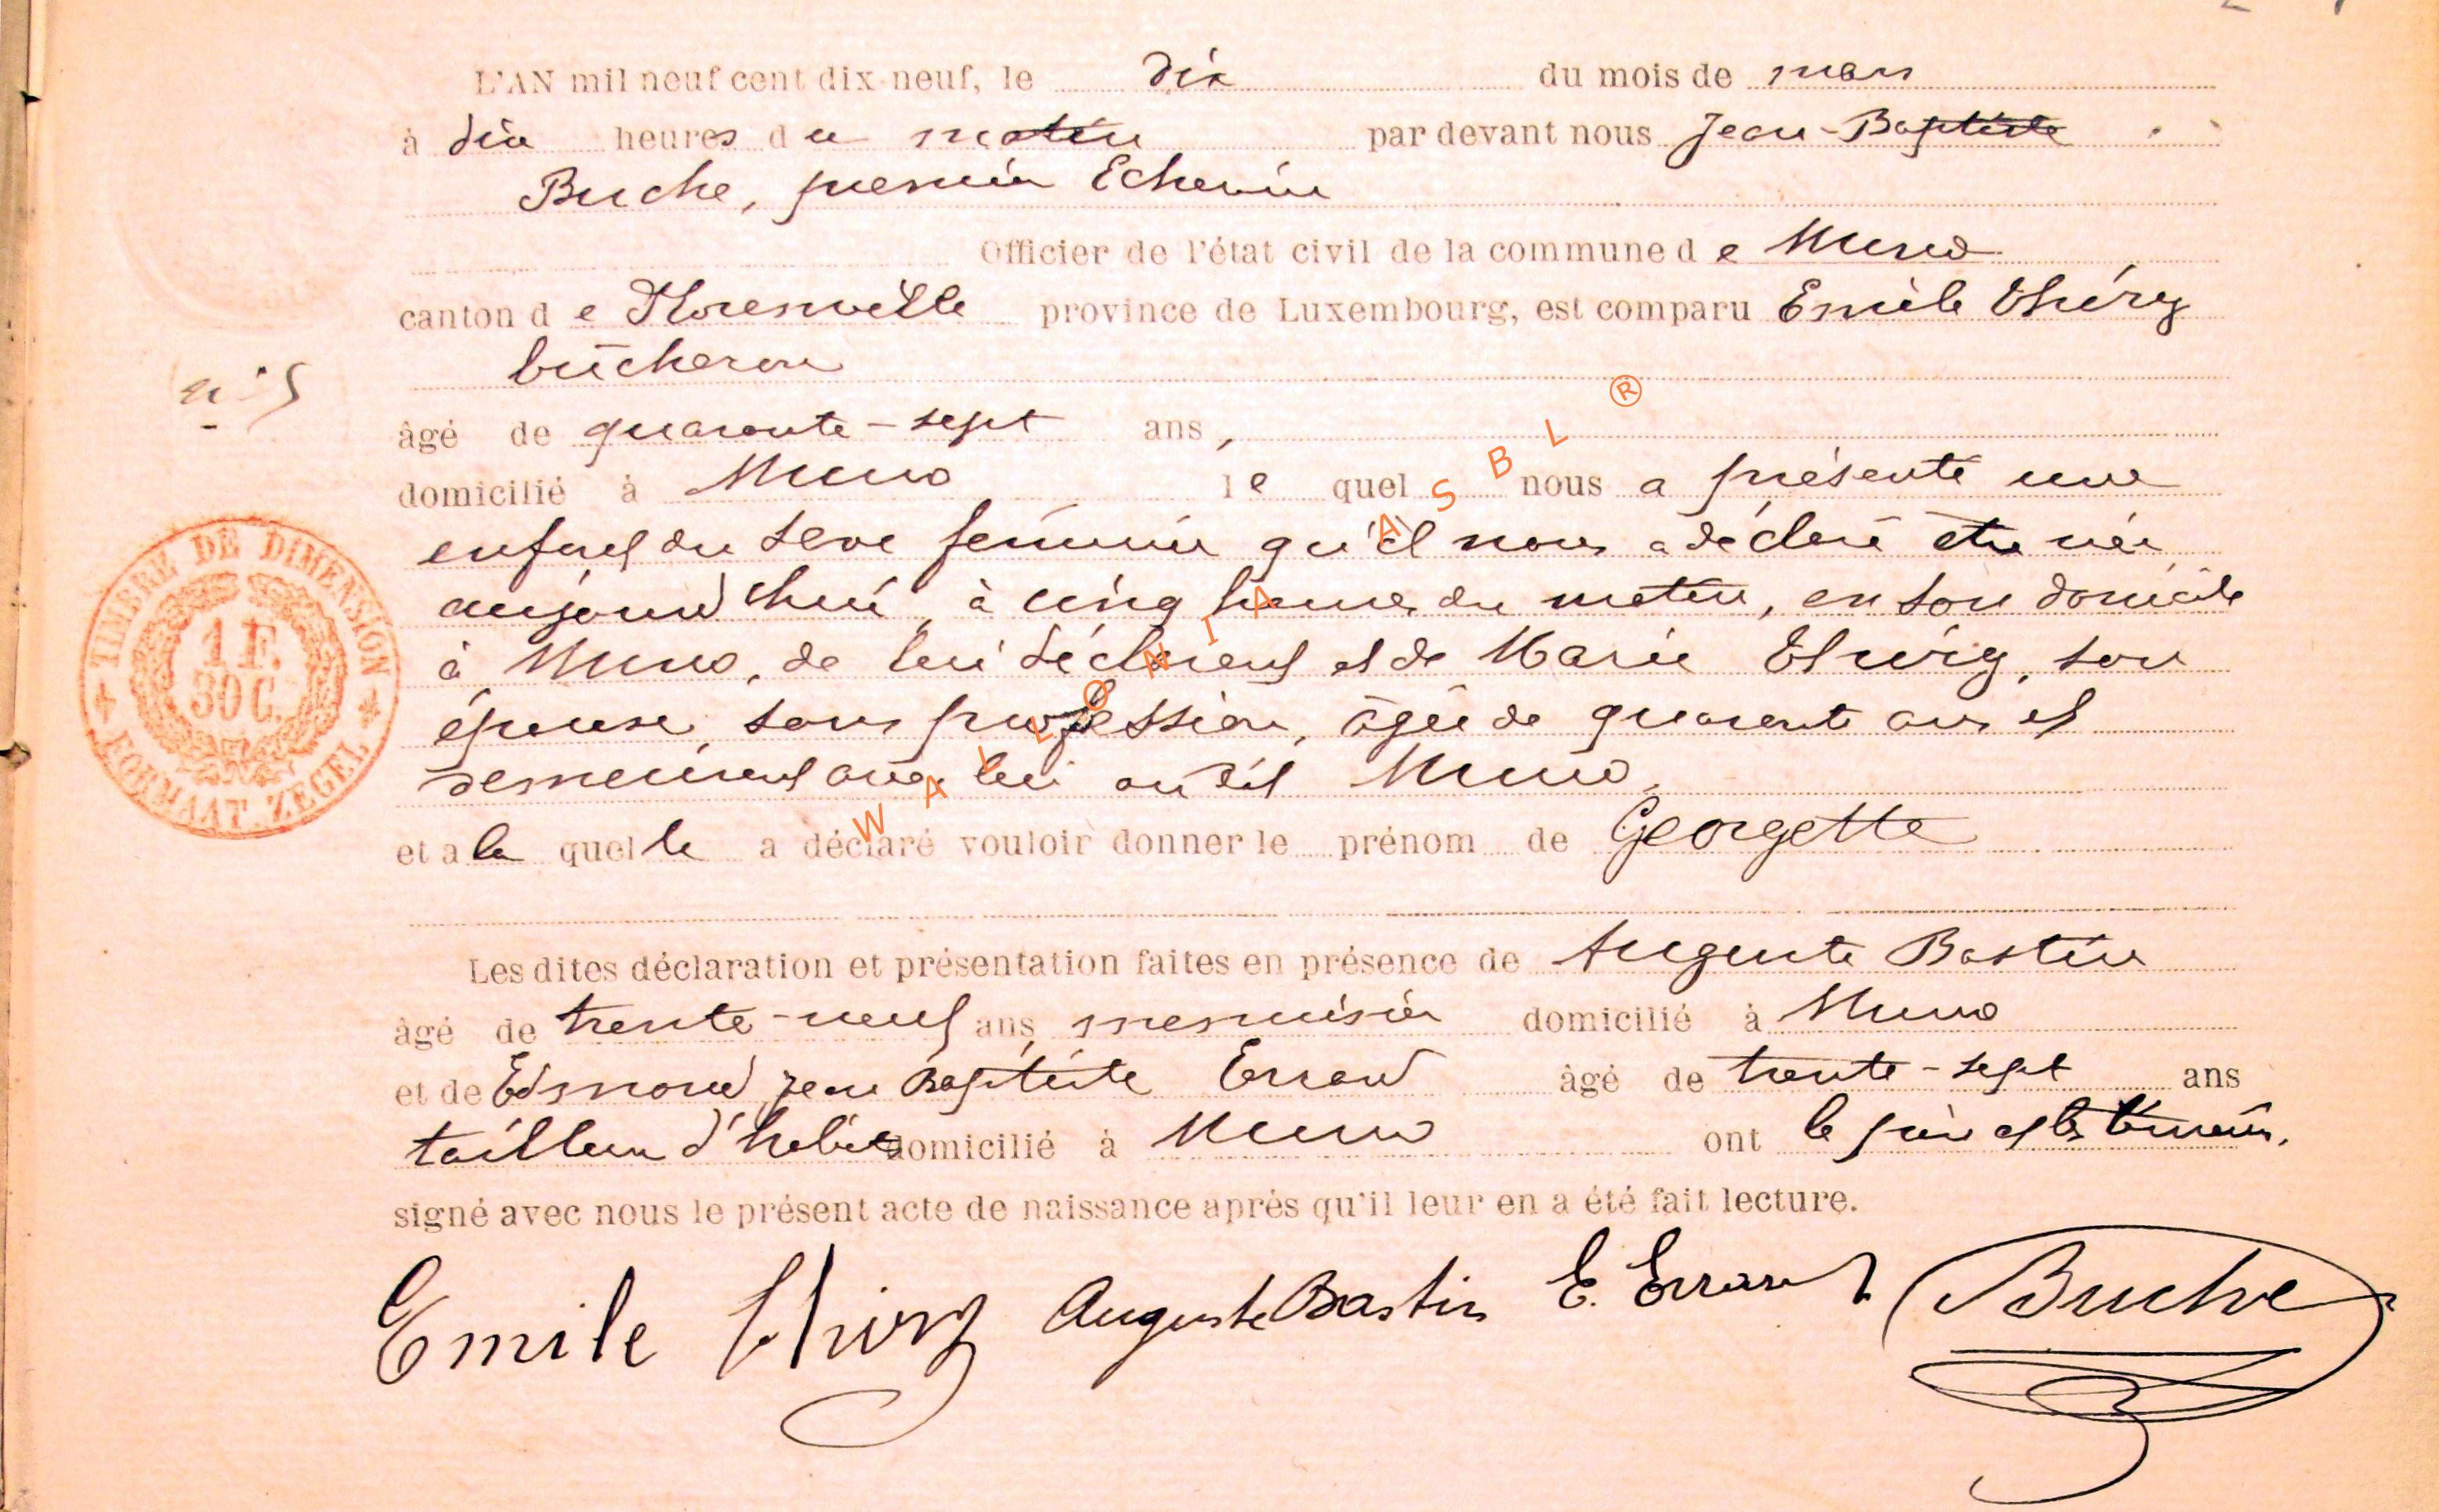 L'AN mil neuf cent dix-neuf, le dix du mois de mars
à dix heures du matin par devant nous Jean-Baptiste
Buche, premier Echevin
Officier de l'état civil de la commune de Muno
canton de Florenville province de Luxembourg, est comparu Emile Thiéry
bûcheron
n° 5
âgé de quarante-sept ans,
domicilié à Muno lequel nous a présenté une
enfant du sexe féminin qu'il nous a déclaré être née
aujourd'hui, à cinq heures du matin, en son domicile
à Muno, de lui déclarant et de Marie Thiéry, son
épouse, sans profession, âgée de quarante ans et
demeurant avec lui audit Muno,
et a la quelle a déclaré vouloir donner le prénom de Georgette
Les dites déclaration et présentation faites en présence de Auguste Bastin
âgé de trente-neuf ans, menuisier domicilié à Muno
et de Edmond Jean Baptiste Errard âgé de trente-sept ans
tailleur d'habits domicilié à Muno ont le père et les témoins,
signé avec nous le présent acte de naissance après qu'il leur en a été fait lecture.
Emile Thiéry Auguste Bastin E. Errard Buche
TIMBRE DE DIMENSION
1 F.
30 C.
FORMAAT ZEGEL
WALLONIA ASBL ®